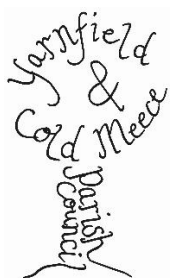 Yarnfield
&
Cold Meece
Parish
Council